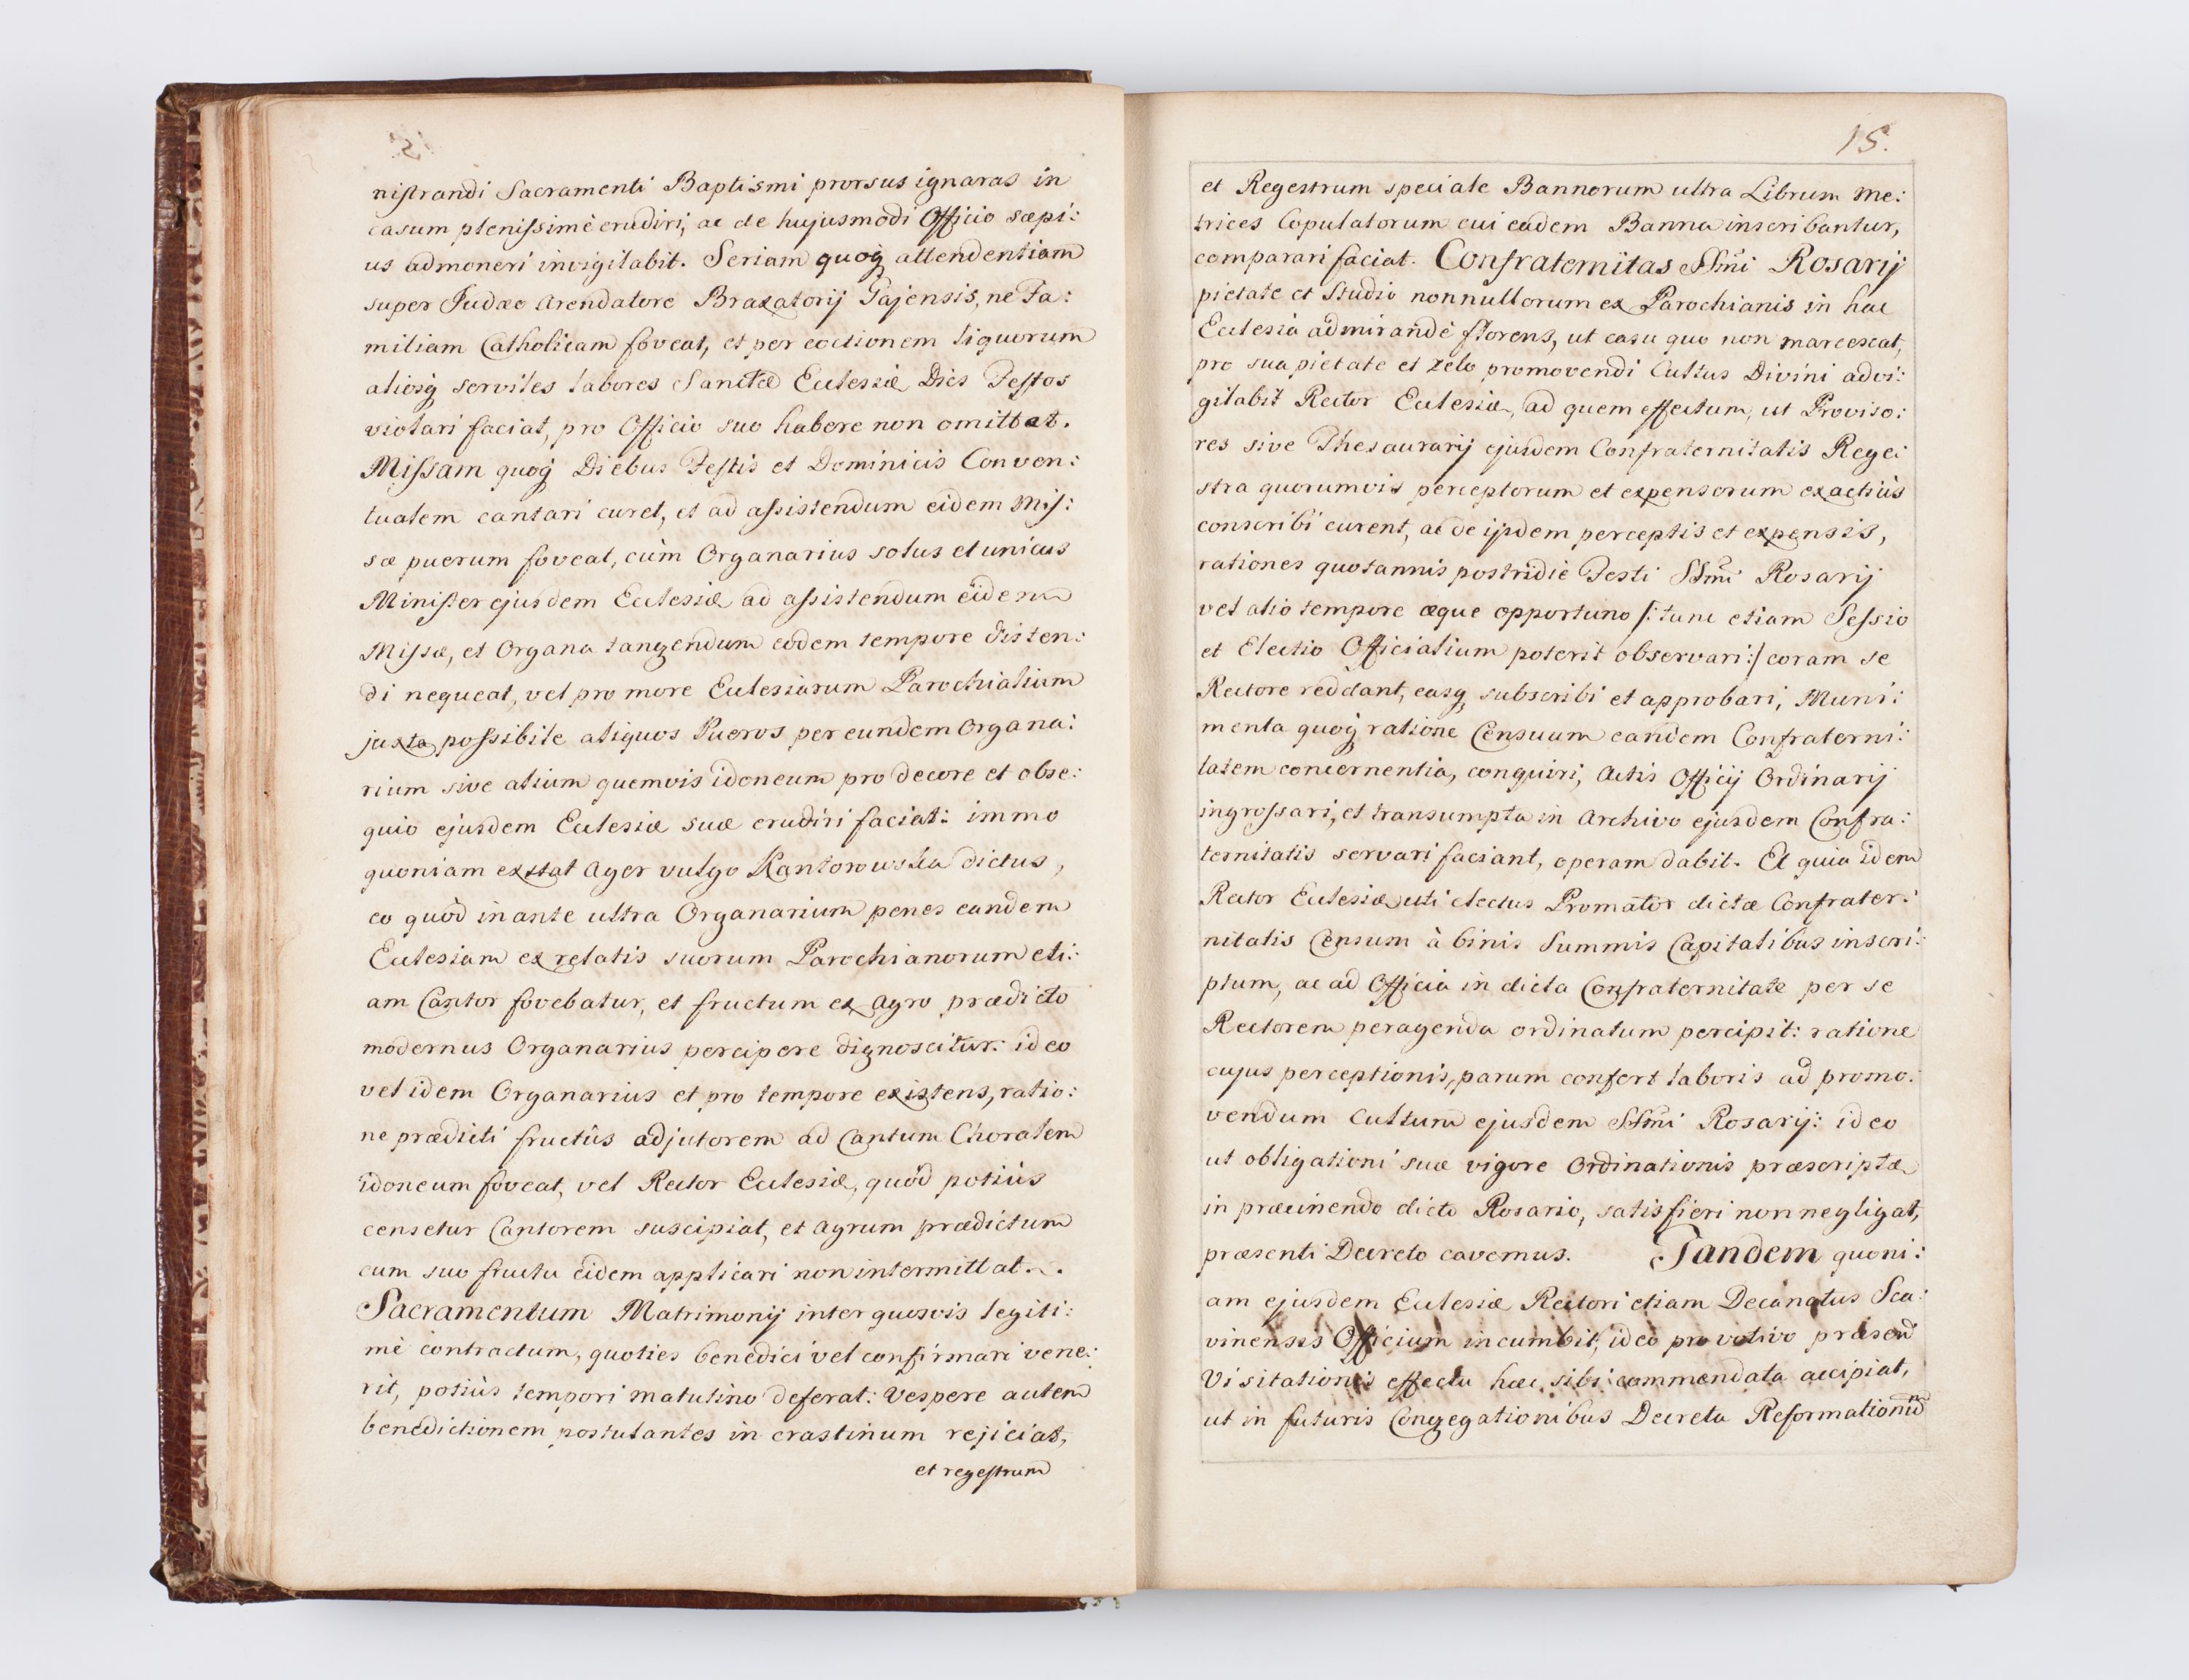 nistrandi Sacramenti Baptismi prorsus ignaras in
casum plenissimè erudiri, ac de hujusmodi Officio sæpi:
us admoneri invigilabit. Seriam quoq; attendentiam
super Judæo Arendatore Braxatorij Gajensis, ne Fa:
miliam Catholicam foveat, et per coctionem liquorum
aliosq; serviles labores Sanctæ Ecclesiæ Dies Festos
violari faciat, pro Officio suo habere non omittat.
Missam quoq; Diebus Festis et Dominicis Conven:
tualem cantari curet, et ad assistendum eidem Mis:
sæ puerum foveat, cùm Organarius solus et unicus
Minister ejusdem Ecclesiæ ad assistendum eidem
Missæ, et Organa tangendum eodem tempore disten:
di nequeat, vel pro more Ecclesiarum Parochialium
juxta possibile aliquos Pueros per eundem Organa:
rium sive alium quemvis idoneum pro decore et obse:
quio ejusdem Ecclesiæ suæ erudiri faciat: immo
quoniam exstat Ager vulgo Kantorowska dictus,
eo quòd in ante ultra Organarium penes eandem
Ecclesiam ex relatis suorum Parochianorum eti:
am Cantor fovebatur, et fructum ex Agro prædicto
modernus Organarius percipere dignoscitur: ideo
vel idem Organarius et pro tempore existens, ratio:
ne prædicti fructûs adjutorem ad Cantum Choralem
idoneum foveat, vel Rector Ecclesiæ, quòd potiùs
censetur Cantorem suscipiat, et Agrum prædictum
cum suo fructu eidem applicari non intermittat.
Sacramentum Matrimonij inter quosvis legiti:
mè contractum, quoties benedici vel confirmari vene:
rit, potiùs tempori matutino deferat: Vespere autem
benedictionem postulantes in crastinum rejiciat,
et regestrum
15.
et Regestrum speciale Bannorum ultra Librum Me:
trices Copulatorum cui eadem Banna inscribantur,
comparari faciat. Confraternitas SSmi Rosarij
pietate et Studio nonnullorum ex Parochianis in hac
Ecclesia admirandè florens, ut casu quo non marcescat,
pro sua pietate et zelo promovendi Cultus Divini advi:
gilabit Rector Ecclesiæ, ad quem effectum, ut Proviso:
res sive Thesaurarij ejusdem Confraternitatis Rege:
stra quorumvis perceptorum et expensorum exactiùs
conscribi curent, ac de ijsdem perceptis et expensis,
rationes quotannis postridie Festi SSmi Rosarij
vel alio tempore æque opportuno /: tunc etiam Sessio
et Electio Officialium poterit observari :/ coram se
Rectore reddant, easq; subscribi et approbari, Muni:
menta quoq; ratione Censuum eandem Confraterni:
tatem concernentia, conquiri, Actis Officij Ordinarij
ingrossari, et transumpta in Archivo ejusdem Confra:
ternitatis servari faciant, operam dabit. Et quia idem
Rector Ecclesiæ uti electus Promator dictæ Confrater:
nitatis Censum à binis Summis Capitalibus inscri:
ptum, ac ad Officia in dicta Confraternitate per se
Rectorem peragenda ordinatum percipit: ratione
cujus perceptionis, parum confert laboris ad promo:
vendum Cultum ejusdem SSmi Rosarij: ideo
ut obligationi suæ vigore Ordinationis præscriptæ
in præcinendo dicto Rosario, satisfieri non negligat,
præsenti Decreto cavemus. Tandem quoni:
am ejusdem Ecclesiæ Rectori etiam Decanatus Sca:
vinensis Officium incumbit, ideo pro votivo præsen
Visitationis effectu hæc sibi commendata accipiat,
ut in futuris Congregationibus Decreta Reformationū